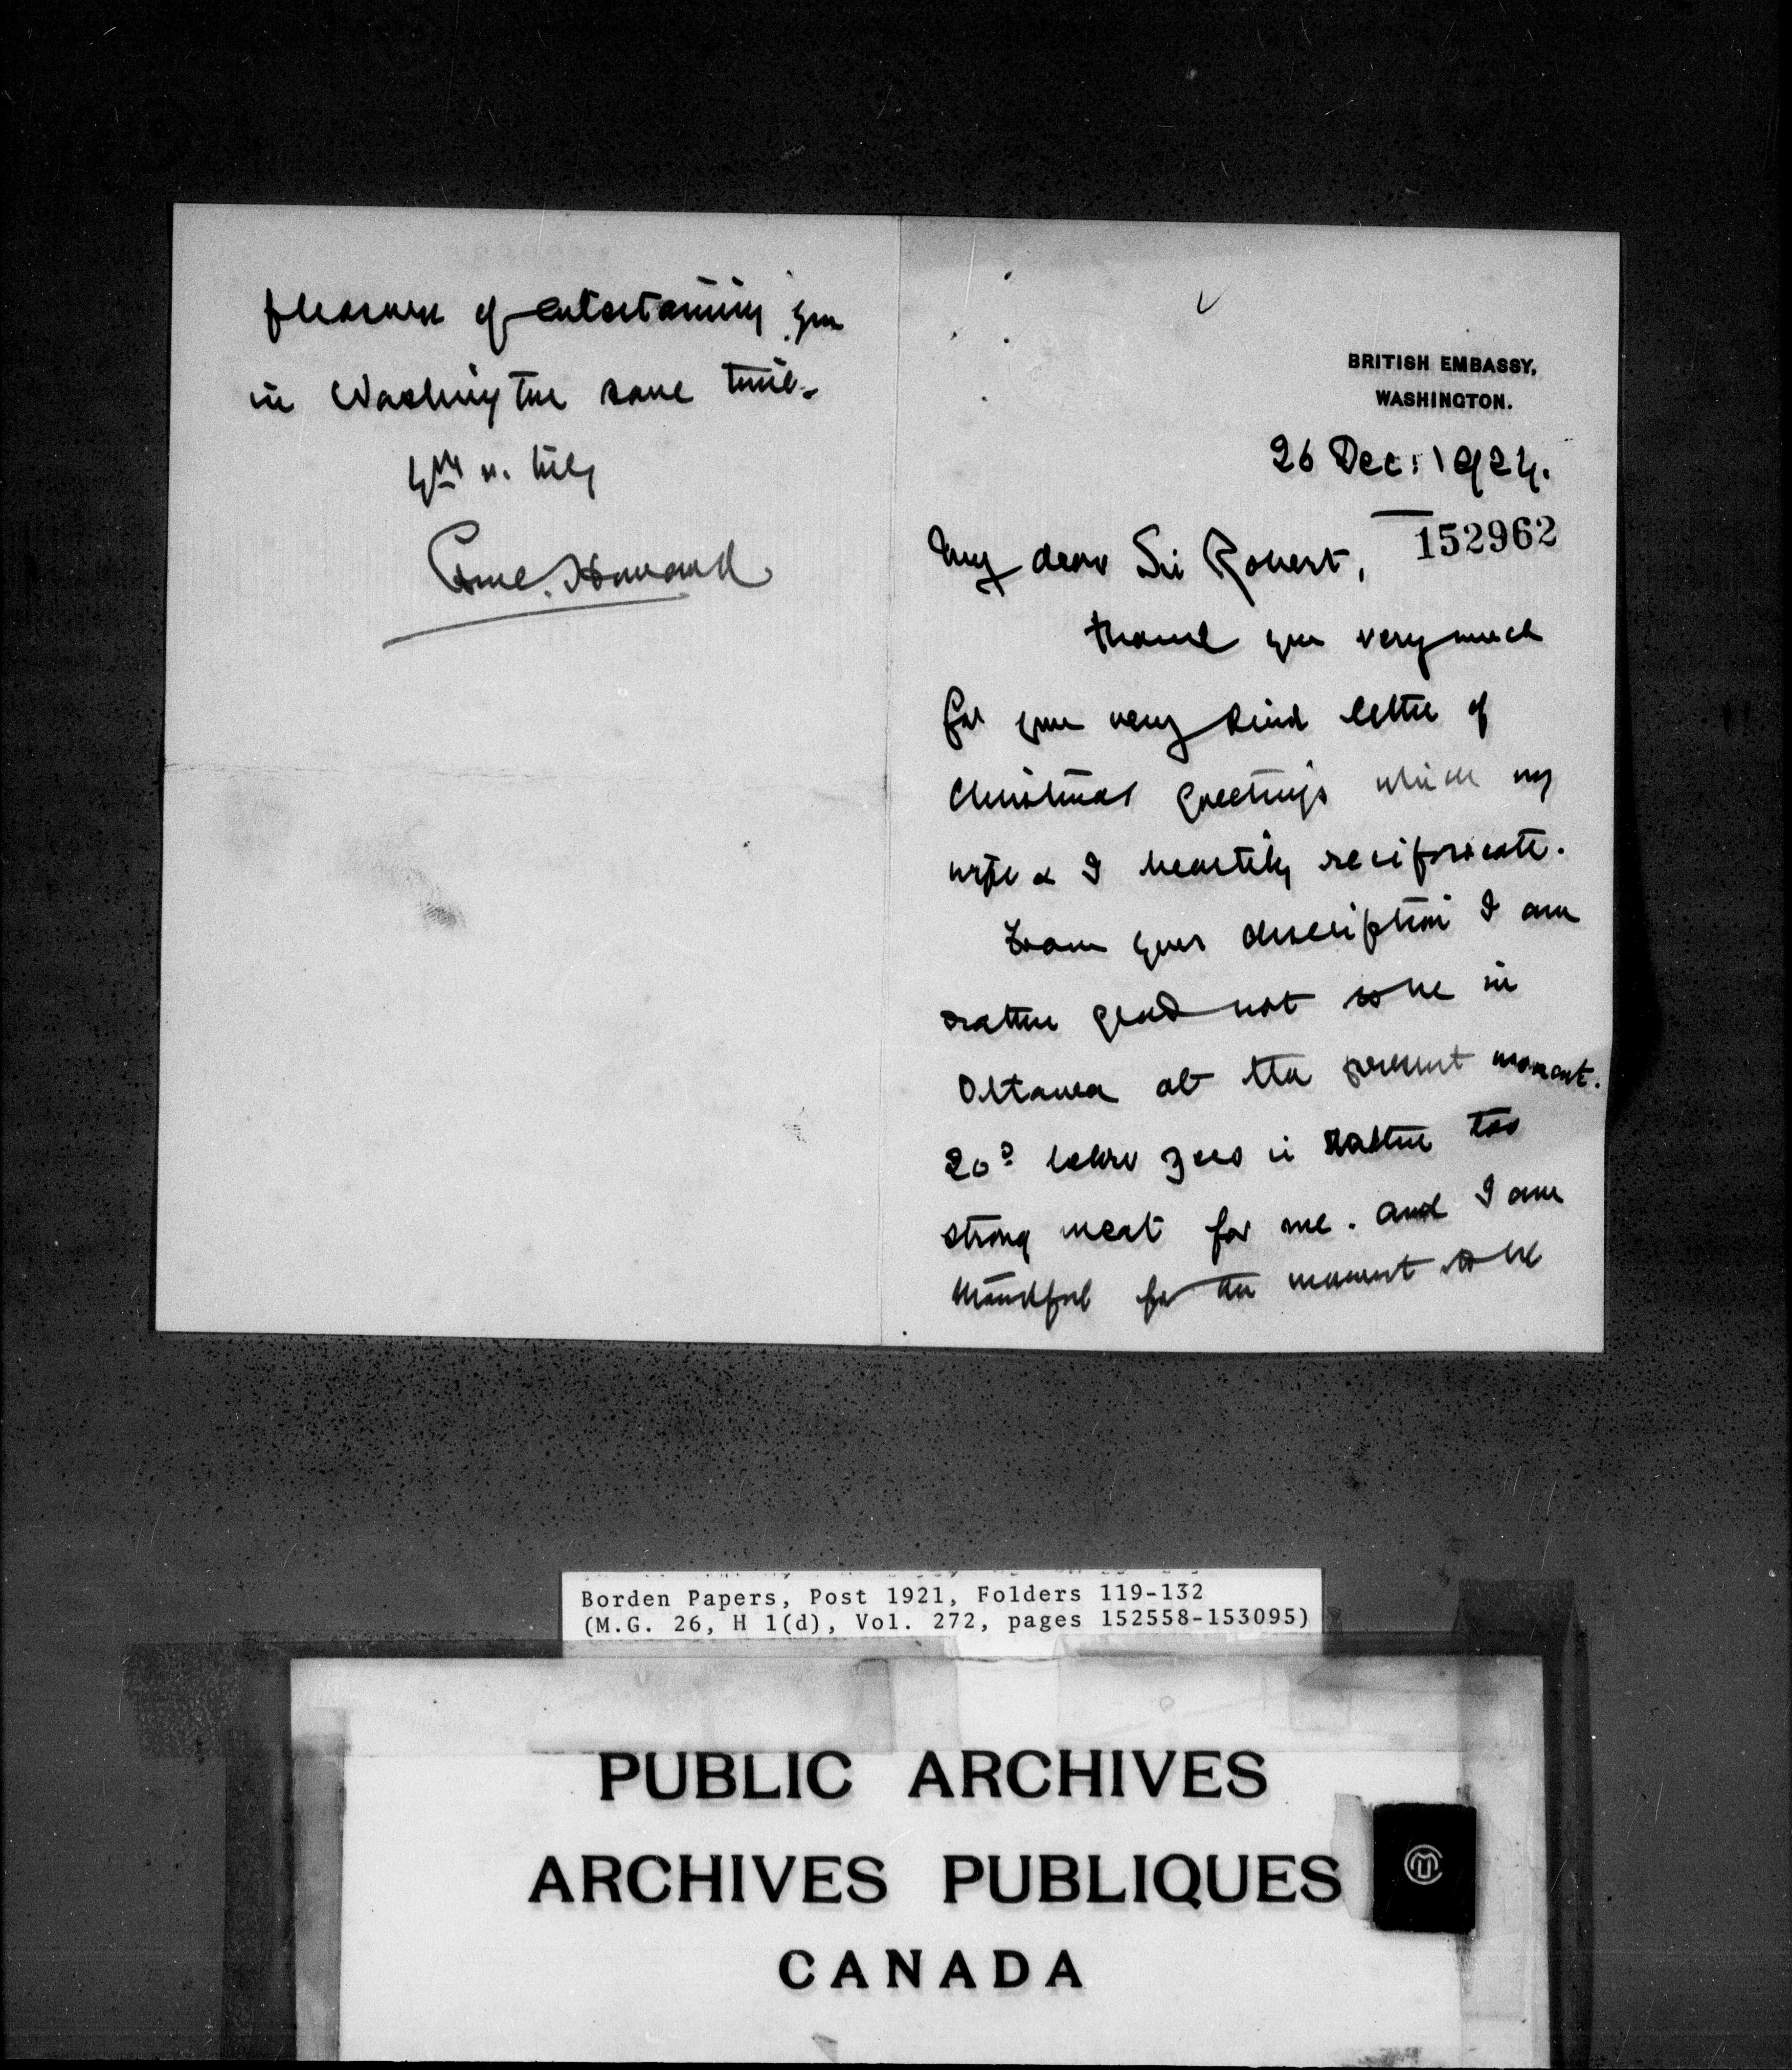 pleasure of entertaining you
in Washington some time.
Yrs v. trly
Esme Howard
BRITISH EMBASSY,
WASHINGTON.
26 Dec: 1924.
152962
My dear Sir Robert,
Thank you very much
for your very kind letter of
Christmas greetings which my
wife & I heartily reciprocate.
From your description I am
rather glad not to be in
Ottawa at the present moment.
20° below zero is rather too
strong meat for me. and I am
thankful for the moment to be
Borden Papers, Post 1921, Folders 119-132
(M.G. 26, H 1(d), Vol. 272, pages 152558-153095)
PUBLIC ARCHIVES
ARCHIVES PUBLIQUES
CANADA